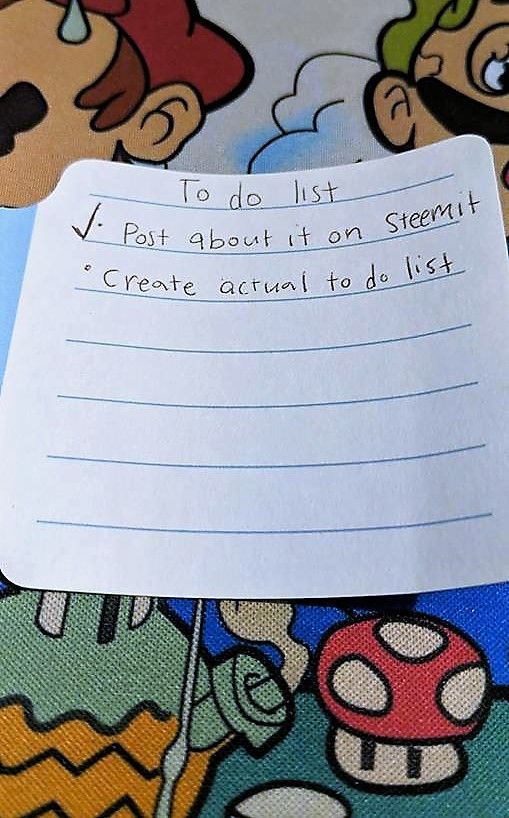 To do list
✓• Post about it on Steemit
• Create actual to do list